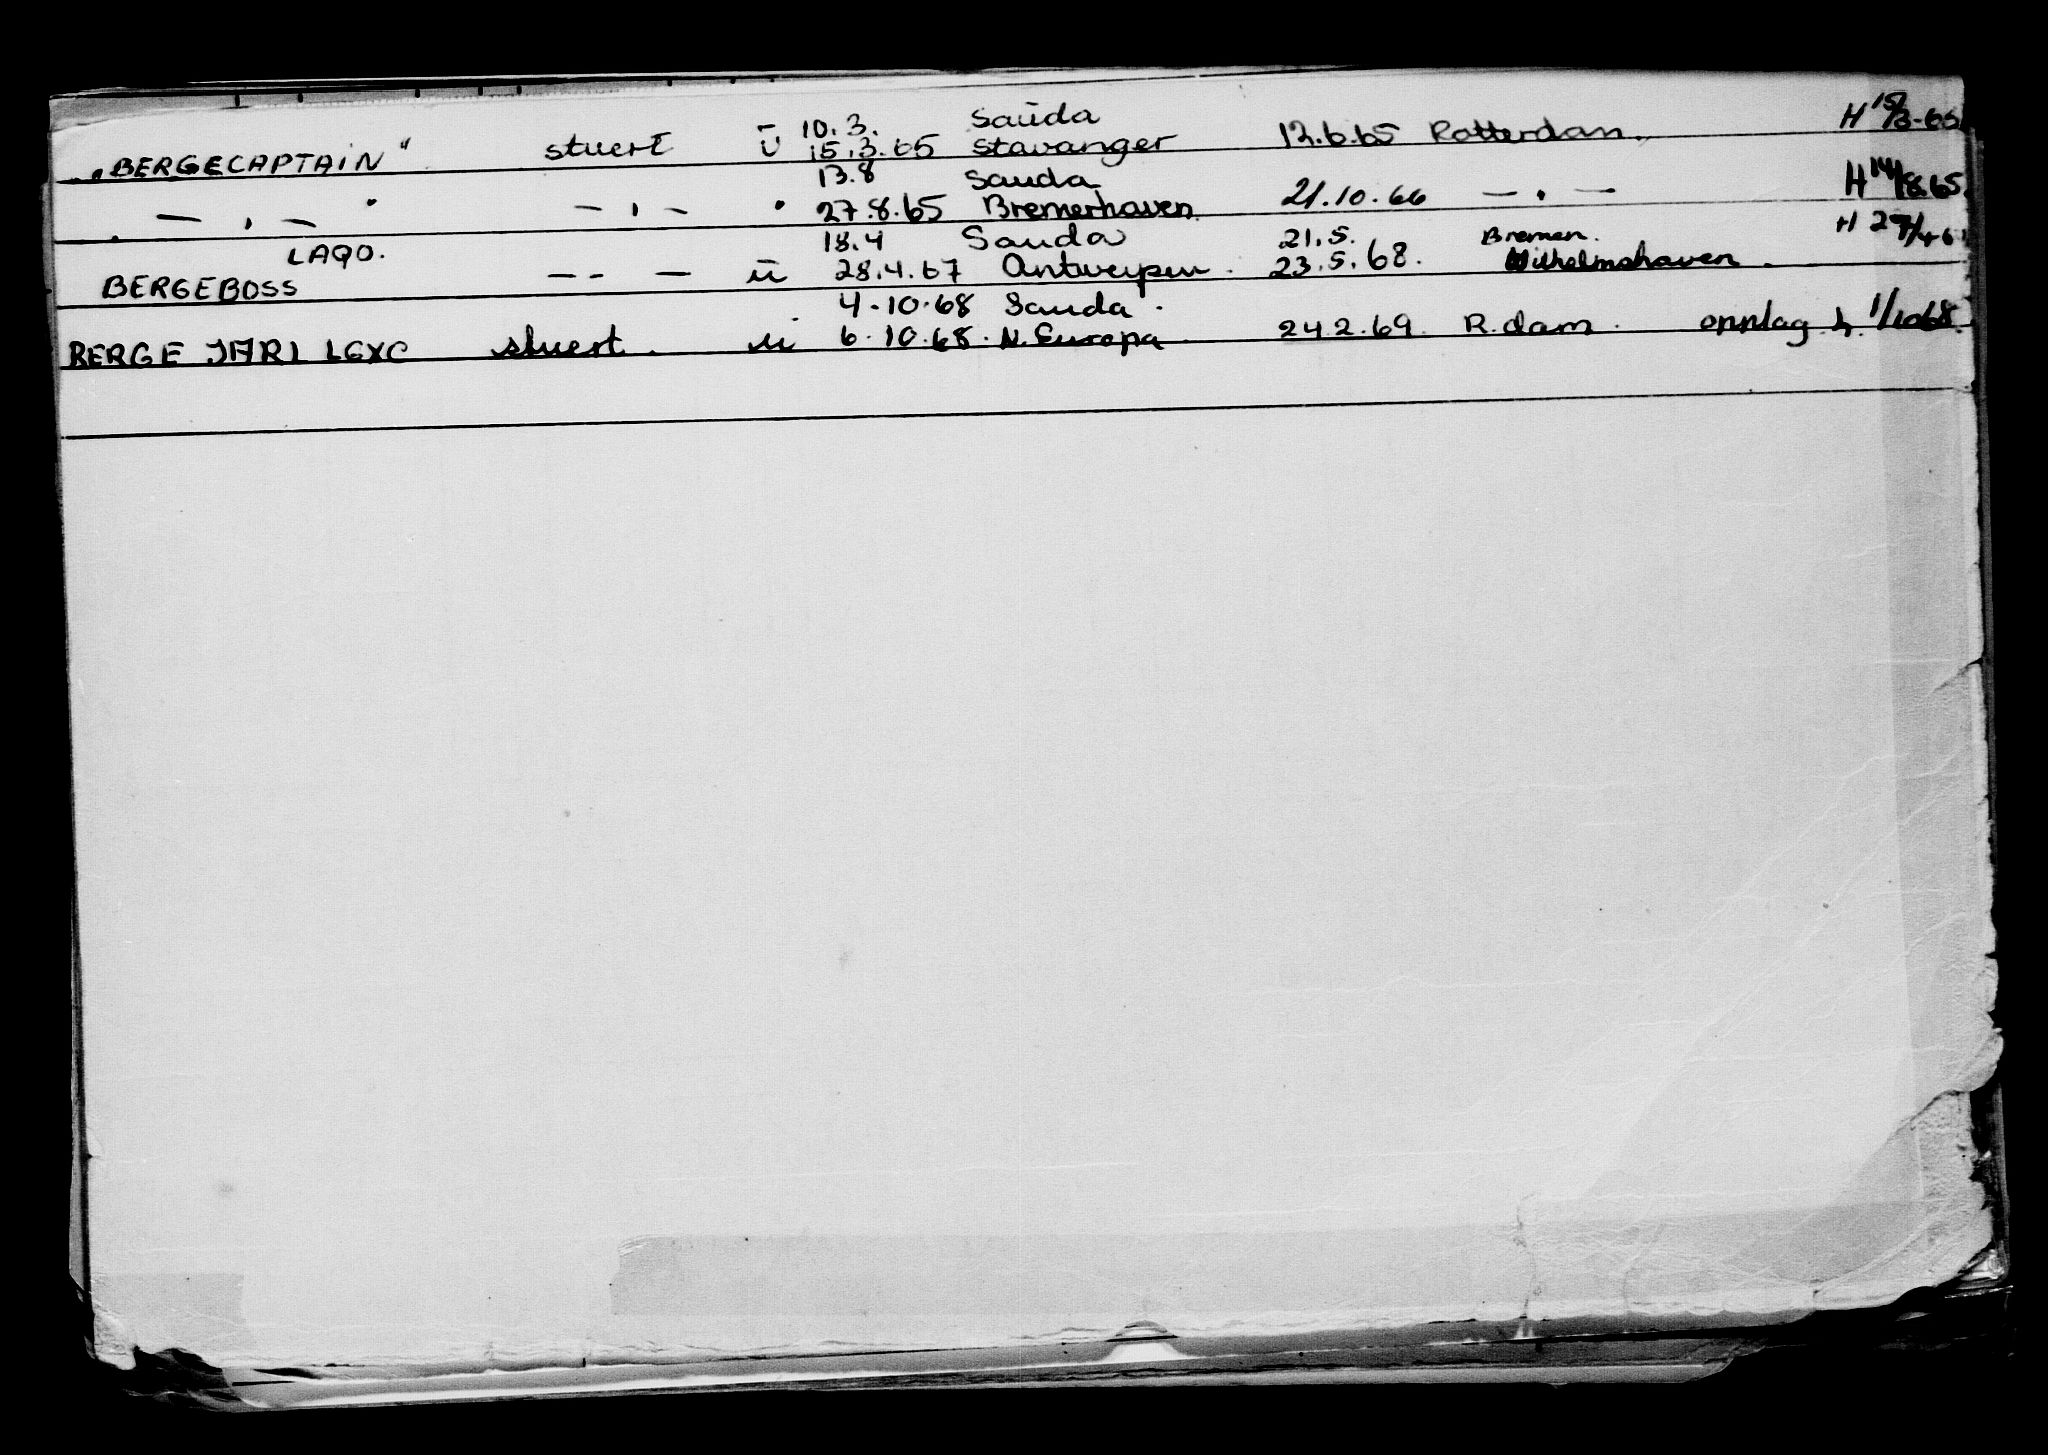 10.3. Sauda H 15/3-65
„BERGECAPTAIN" stuert ū 15.3.65 Stavanger 12.6.65 Rotterdam.
13.8 Sauda H 14/8.65.
" — , — " — , — " 27.8.65 Bremerhaven 21.10.66 — . —
LAQO. 18.4 Sauda 21.5. Bremen.
BERGEBOSS — - — ū 28.4.67 Antwerpen. 23.5.68. Wilhelmshaven.
4.10.68 Sauda.
BERGE JARL LGXC stuert. u 6.10.68. N. Europa 24.2.69. R.dam. opplag h. 1/10 68.